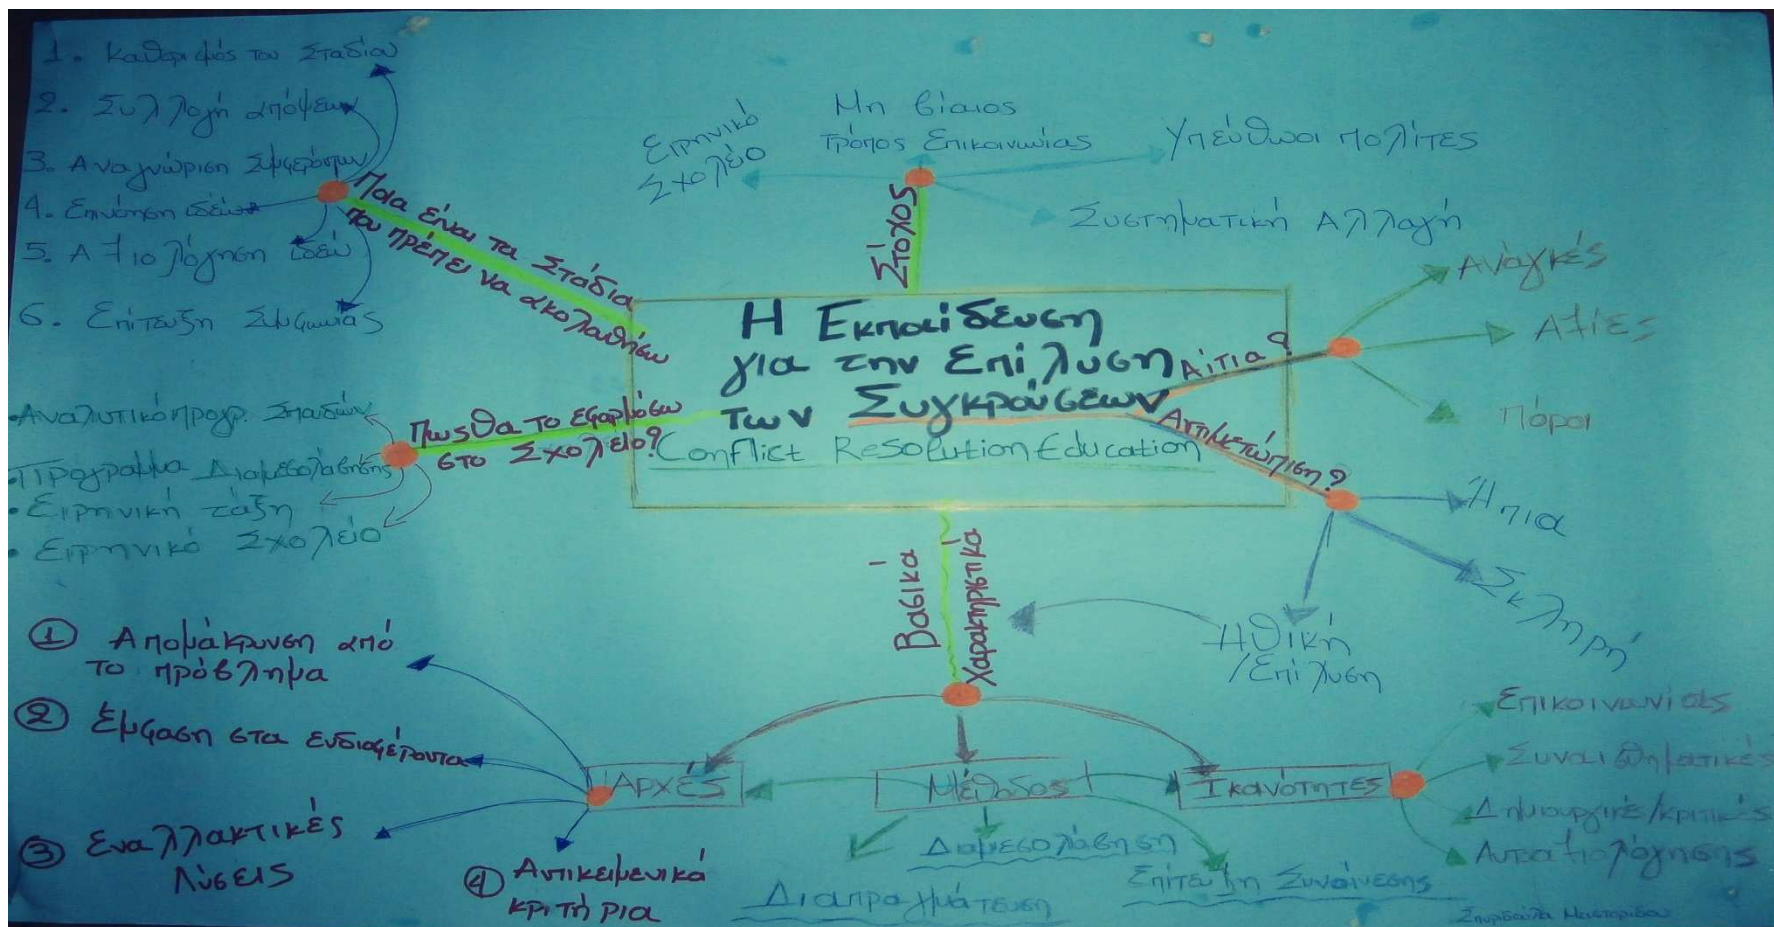 1. Καθορισμός του Σταδίου
2. Συλλογή απόψεων
3. Αναγνώριση Συμφερόντων
4. Επινόηση ιδεών
5. Αξιολόγηση ιδεών
6. Επίτευξη Συμφωνίας
Ποια είναι τα Στάδια
που πρέπει να ακολουθήσω
Ειρηνικό
Σχολείο
Μη βίαιος
Τρόπος Επικοινωνίας
Υπεύθυνοι πολίτες
Συστηματική Αλλαγή
Στόχος
Η Εκπαίδευση
για την Επίλυση
των Συγκρούσεων
Conflict Resolution Education
Αίτια?
Ανάγκές
Αξίες
Πόροι
Αντιμετώπιση?
Ήπια
Σκληρή
Ηθική
/Επίλυση
Πως θα το εφαρμόσω
στο Σχολείο?
•Αναλυτικό προγρ. Σπουδών
•Πρόγραμμα Διαμεσολάβησης
•Ειρηνική τάξη
•Ειρηνικό Σχολείο
Βασικά
Χαρακτηριστικά
Αρχές
Μέθοδος
Ικανότητες
① Απομάκρυνση από
το πρόβλημα
② Έμφαση στα ενδιαφέροντα
③ Εναλλακτικές
Λύσεις
④ Αντικειμενικά
κριτήρια
Διαμεσολάβηση
Διαπραγμάτευση
Επίτευξη Συναίνεσης
Επικοινωνίας
Συναισθηματικές
Δημιουργικές/κριτικές
Αυτοαξιολόγησης
Σπυριδούλα